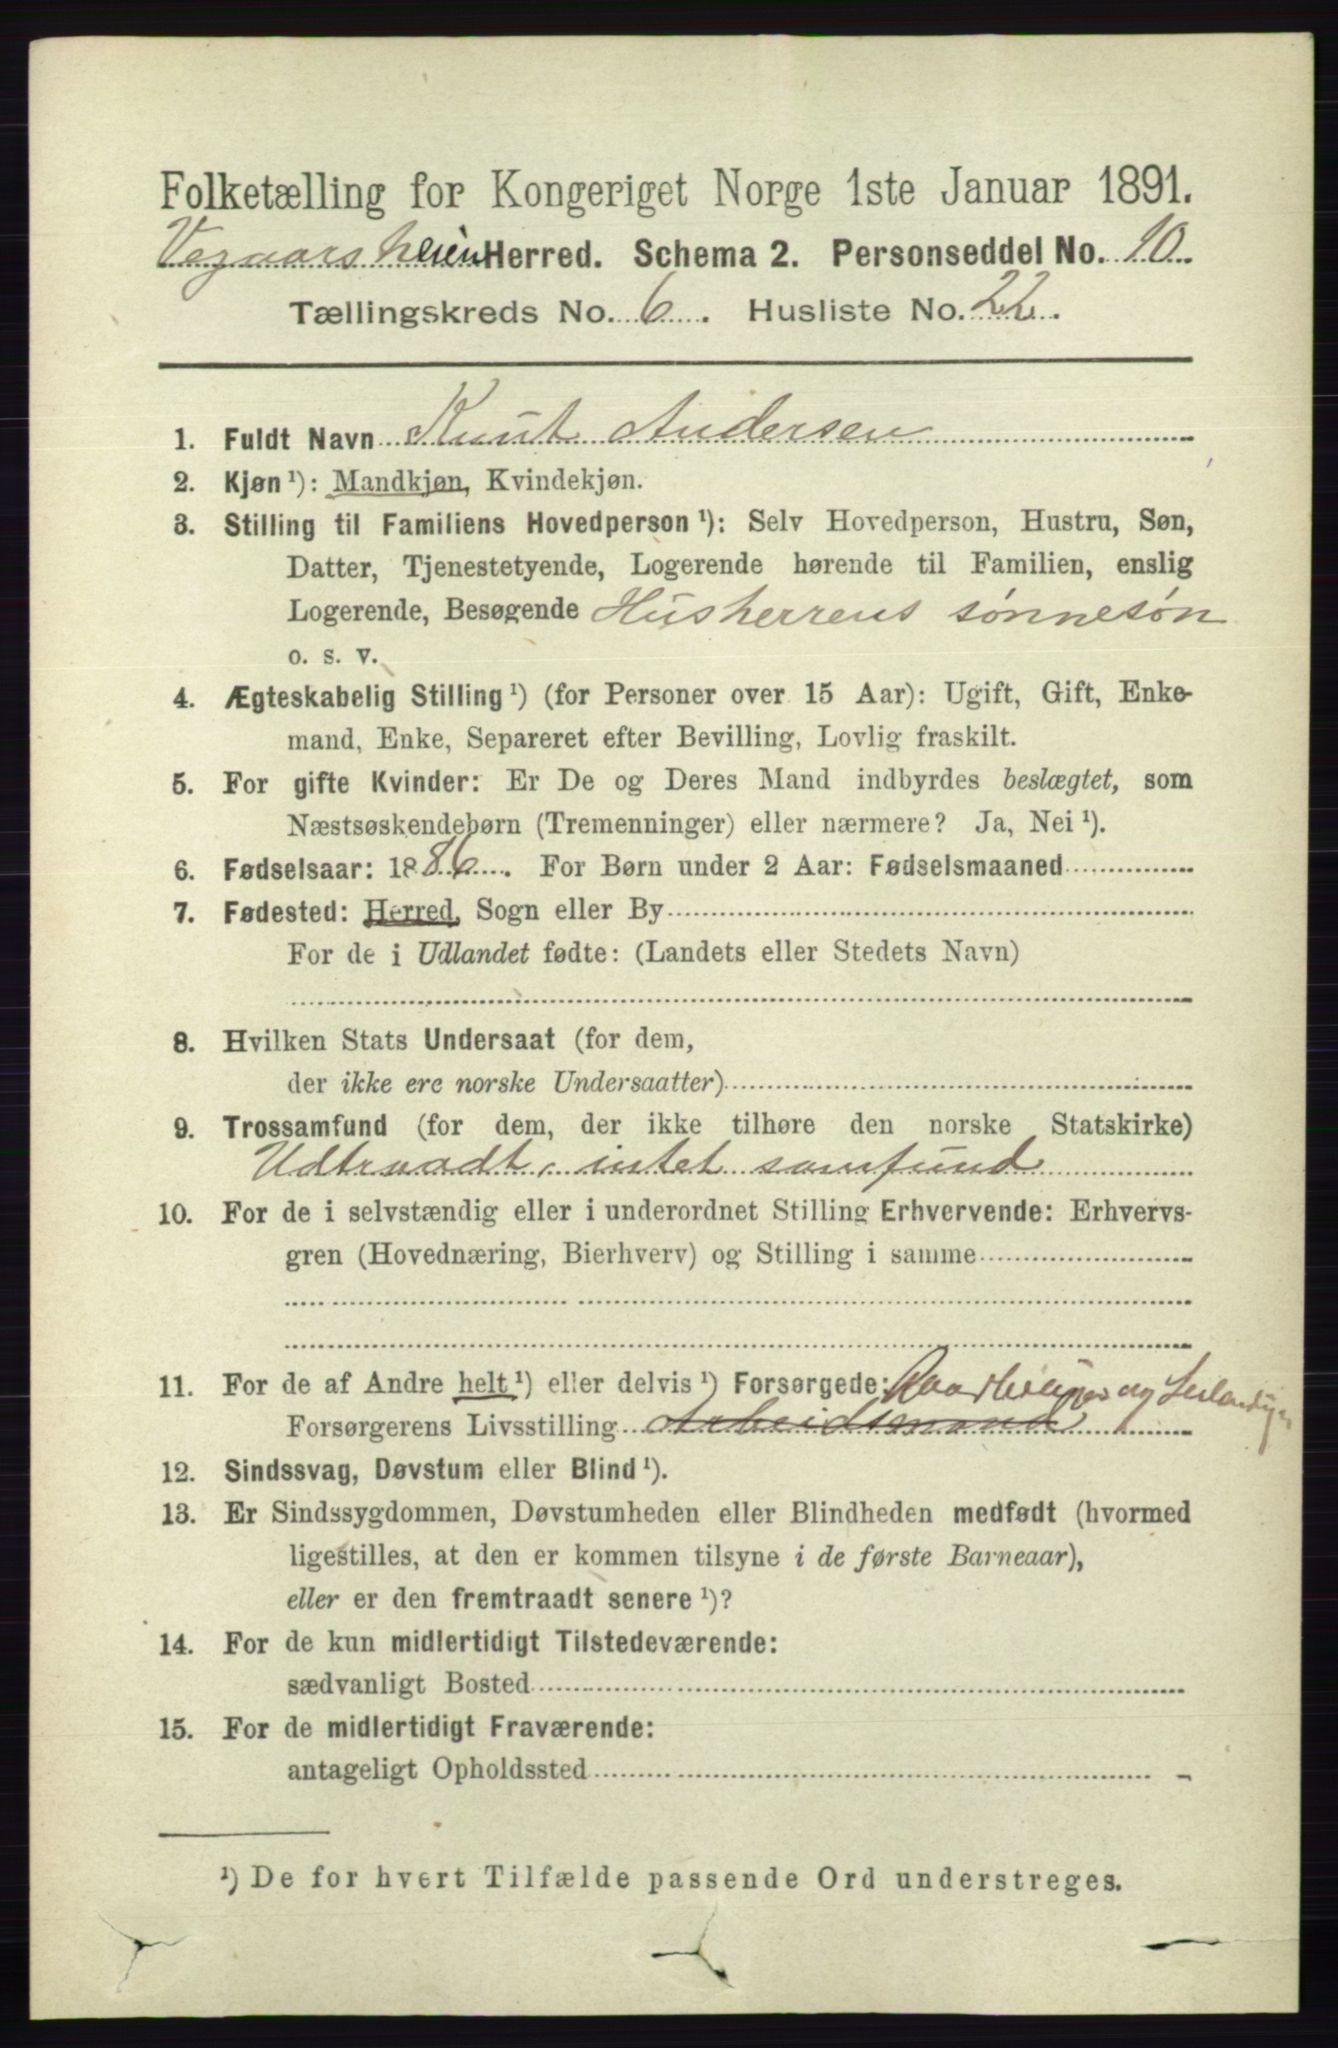 Folketælling for Kongeriget Norge 1ste Januar 1891.
Vegaarsheien Herred. Schema 2. Personseddel No. 10.
Tællingskreds No. 6. Husliste No. 22.
1. Fuldt Navn Knut Andersen
2. Kjøn ¹): Mandkjøn, Kvindekjøn.
3. Stilling til Familiens Hovedperson ¹): Selv Hovedperson, Hustru, Søn,
Datter, Tjenestetyende, Logerende hørende til Familien, enslig
Logerende, Besøgende Husherrens sønnesøn
o. s. v.
4. Ægteskabelig Stilling ¹) (for Personer over 15 Aar): Ugift, Gift, Enke-
mand, Enke, Separeret efter Bevilling, Lovlig fraskilt.
5. For gifte Kvinder: Er De og Deres Mand indbyrdes beslægtet, som
Næstsøskendebørn (Tremenninger) eller nærmere? Ja, Nei ¹).
6. Fødselsaar: 1886. For Børn under 2 Aar: Fødselsmaaned
7. Fødested: Herred, Sogn eller By
For de i Udlandet fødte: (Landets eller Stedets Navn)
8. Hvilken Stats Undersaat (for dem,
der ikke ere norske Undersaatter)
9. Trossamfund (for dem, der ikke tilhøre den norske Statskirke)
Udtraadt, intet samfund
10. For de i selvstændig eller i underordnet Stilling Erhvervende: Erhvervs-
gren (Hovednæring, Bierhverv) og Stilling i samme
11. For de af Andre helt ¹) eller delvis ¹) Forsørgede: og
Forsørgerens Livsstilling Arbeidsmand
12. Sindssvag, Døvstum eller Blind ¹).
13. Er Sindssygdommen, Døvstumheden eller Blindheden medfødt (hvormed
ligestilles, at den er kommen tilsyne i de første Barneaar),
eller er den fremtraadt senere ¹)?
14. For de kun midlertidigt Tilstedeværende:
sædvanligt Bosted
15. For de midlertidigt Fraværende:
antageligt Opholdssted
¹) De for hvert Tilfælde passende Ord understreges.